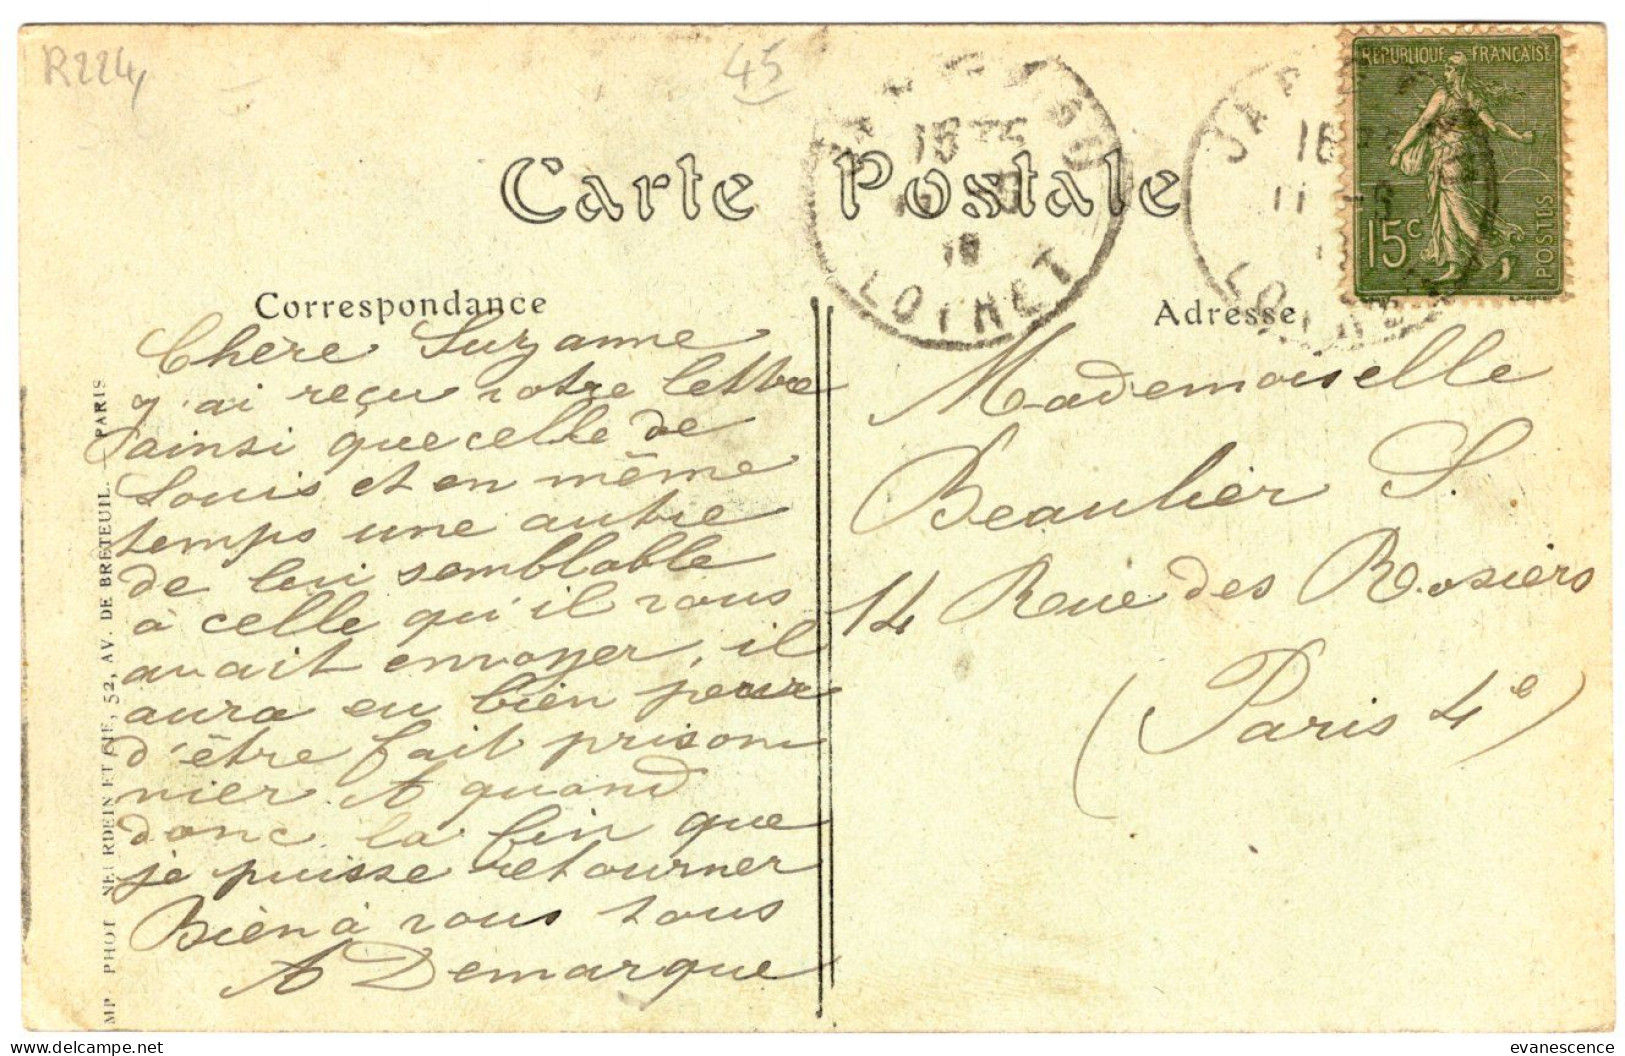 R224
45
Carte Postale
RÉPUBLIQUE FRANÇAISE
15c
POSTES
LOIRET
Correspondance
Chère Suzanne
J'ai reçu votre lettre
ainsi que celle de
Louis et en même
temps une autre
de lui semblable
à celle qu'il vous
avait envoyer, il
aura eu bien peur
d'être fait prison
nier. A quand
donc la fin que
je puisse retourner
Bien à vous tous
A Demarque
Adresse
Mademoiselle
Beaulier S.
14 Rue des Rosiers
(Paris 4e)
IMP. PHOT. NEURDEIN ET CIE, 52, AV. DE BRETEUIL. - PARIS
evanescence